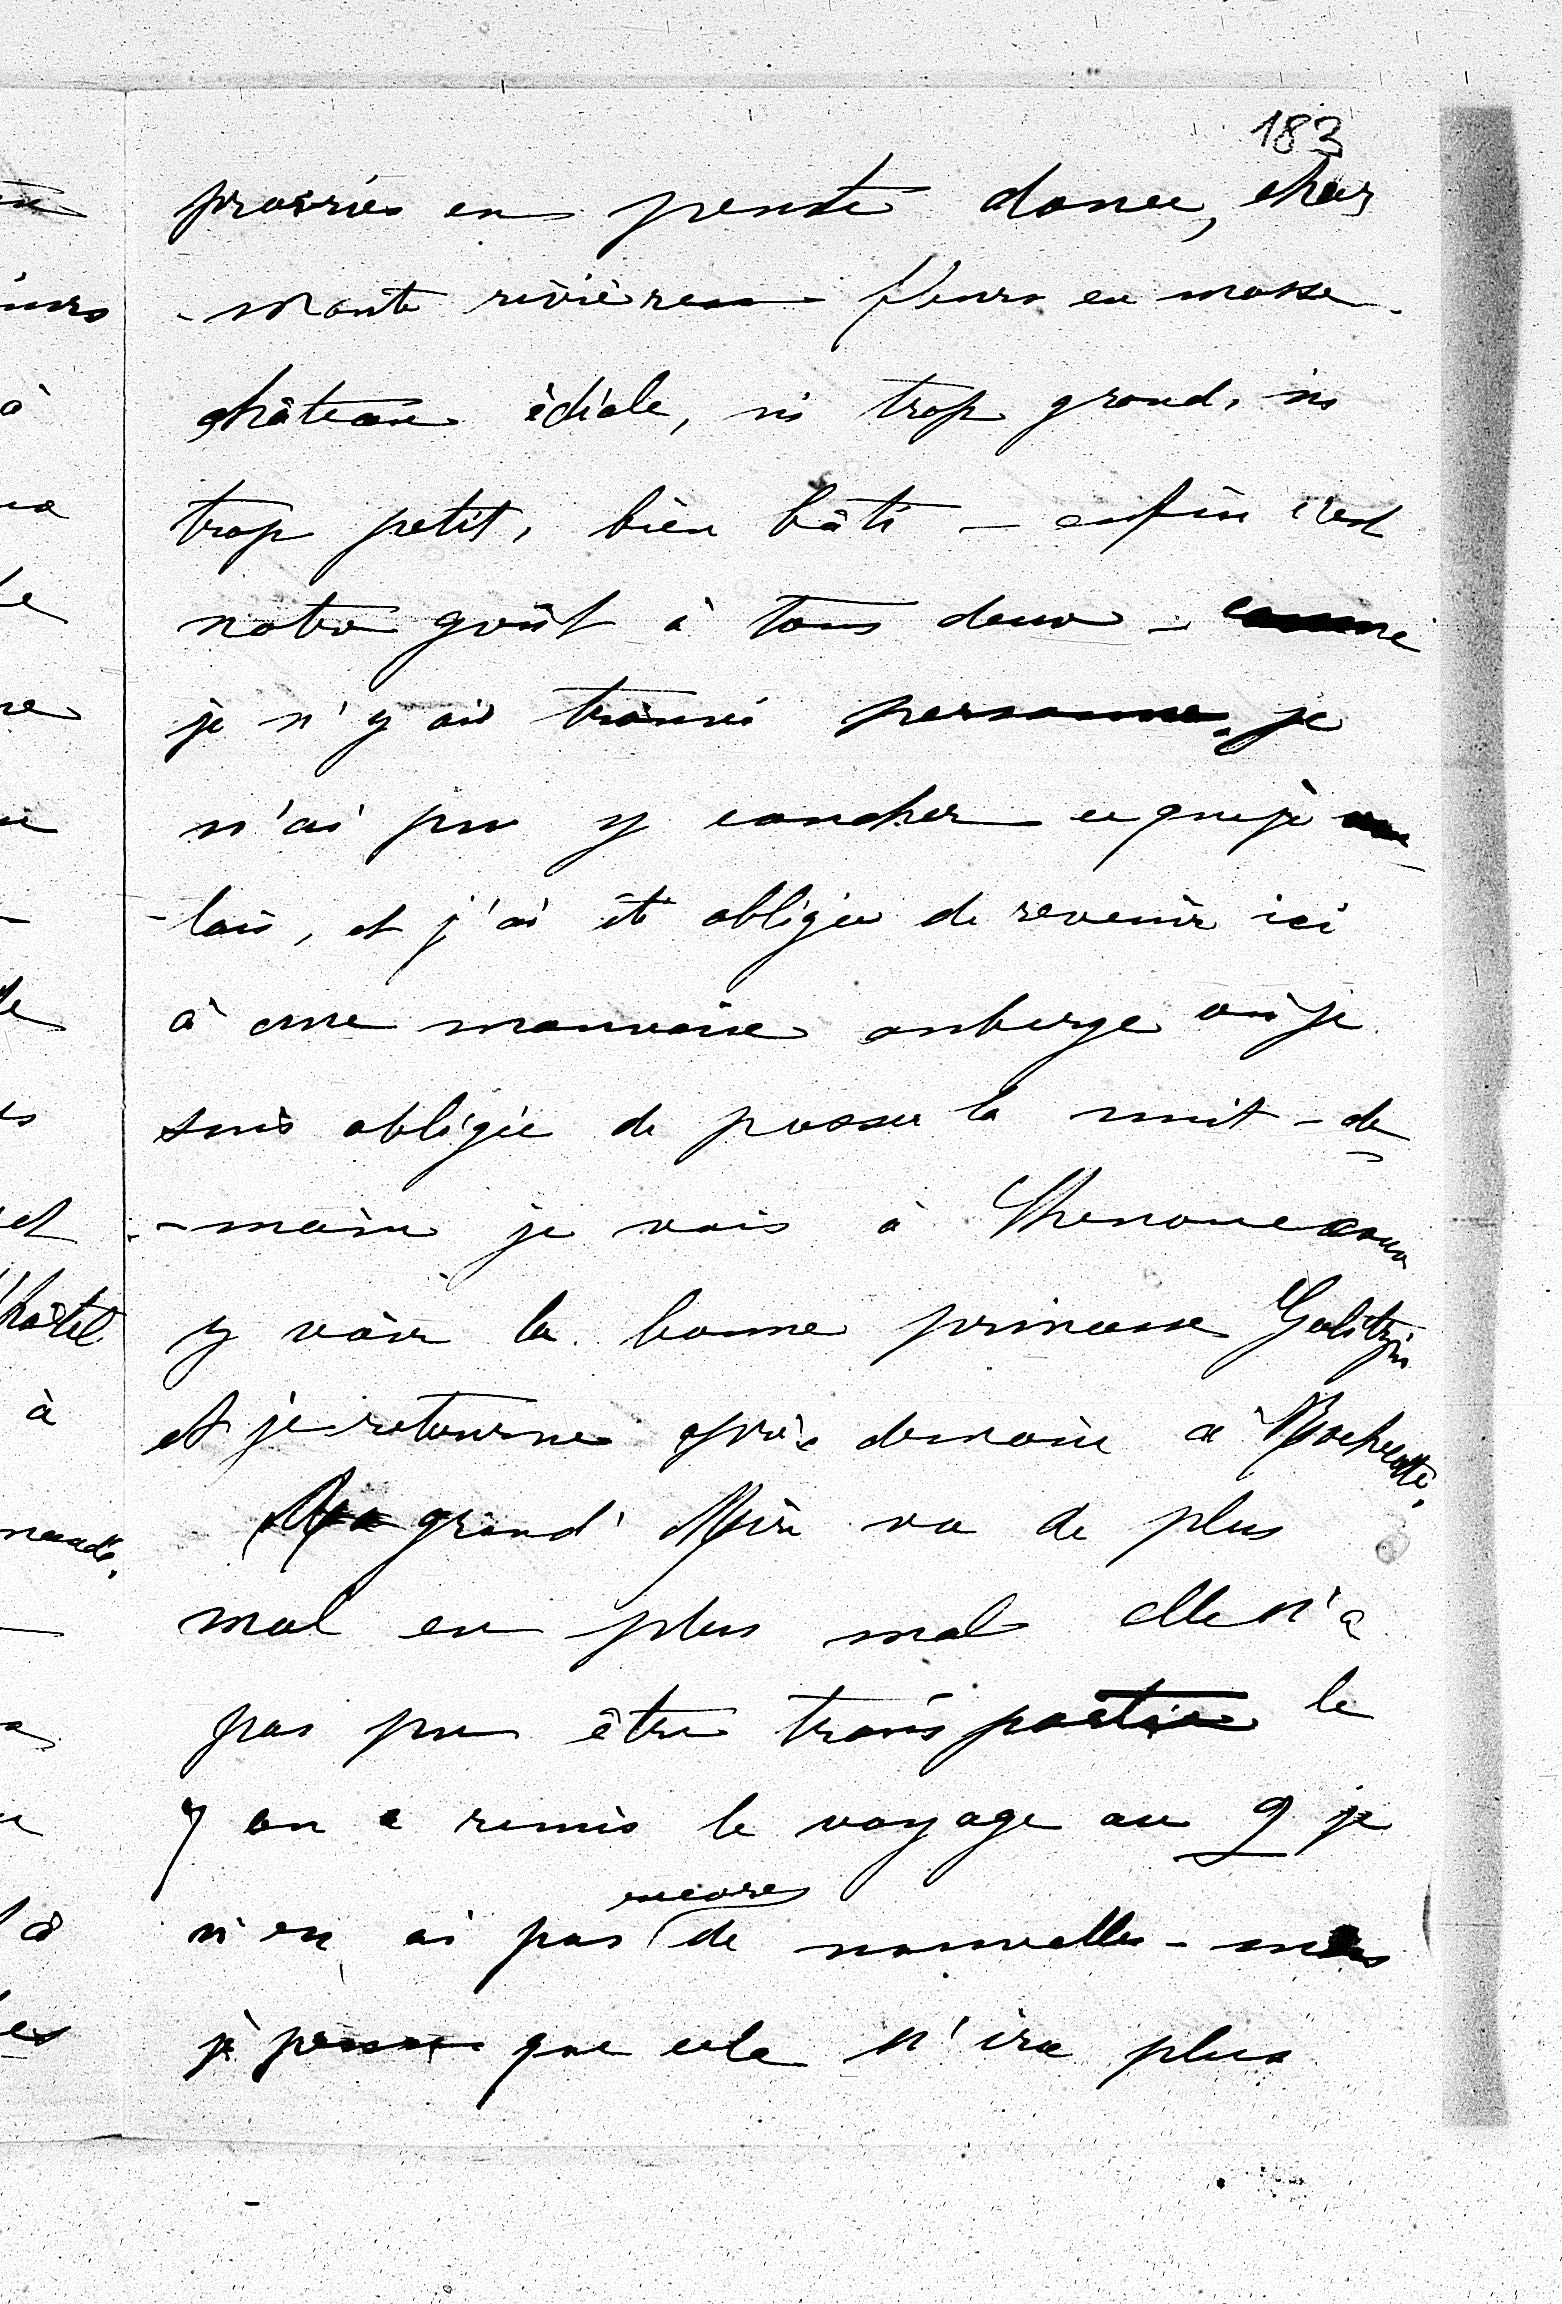 183
prairies en pente douce, char
-mante rivière fleurs en masse -
château idéale, ni trop grand, ni
trop petit, bien bâti - enfin c'est
notre goût à tous deux - comme
je n'y ai trouvé personne, je
n'ai pu y coucher ce que je vou
-lais, et j'ai été obligée de revenir ici
à une mauvaise auberge où je
suis obligée de passer la nuit - de
-main je vais à Chenonceaux
y voir la bonne princesse Galitzin
et je retourne après demain à Rochecotte.
Ma grand' Mère va de plus
mal en plus mal elle n'a
pas pu être transportée le
7 on a remis le voyage au 9 je
encore
n'en ai pas de nouvelles - mais
je pense que cela n'ira plus